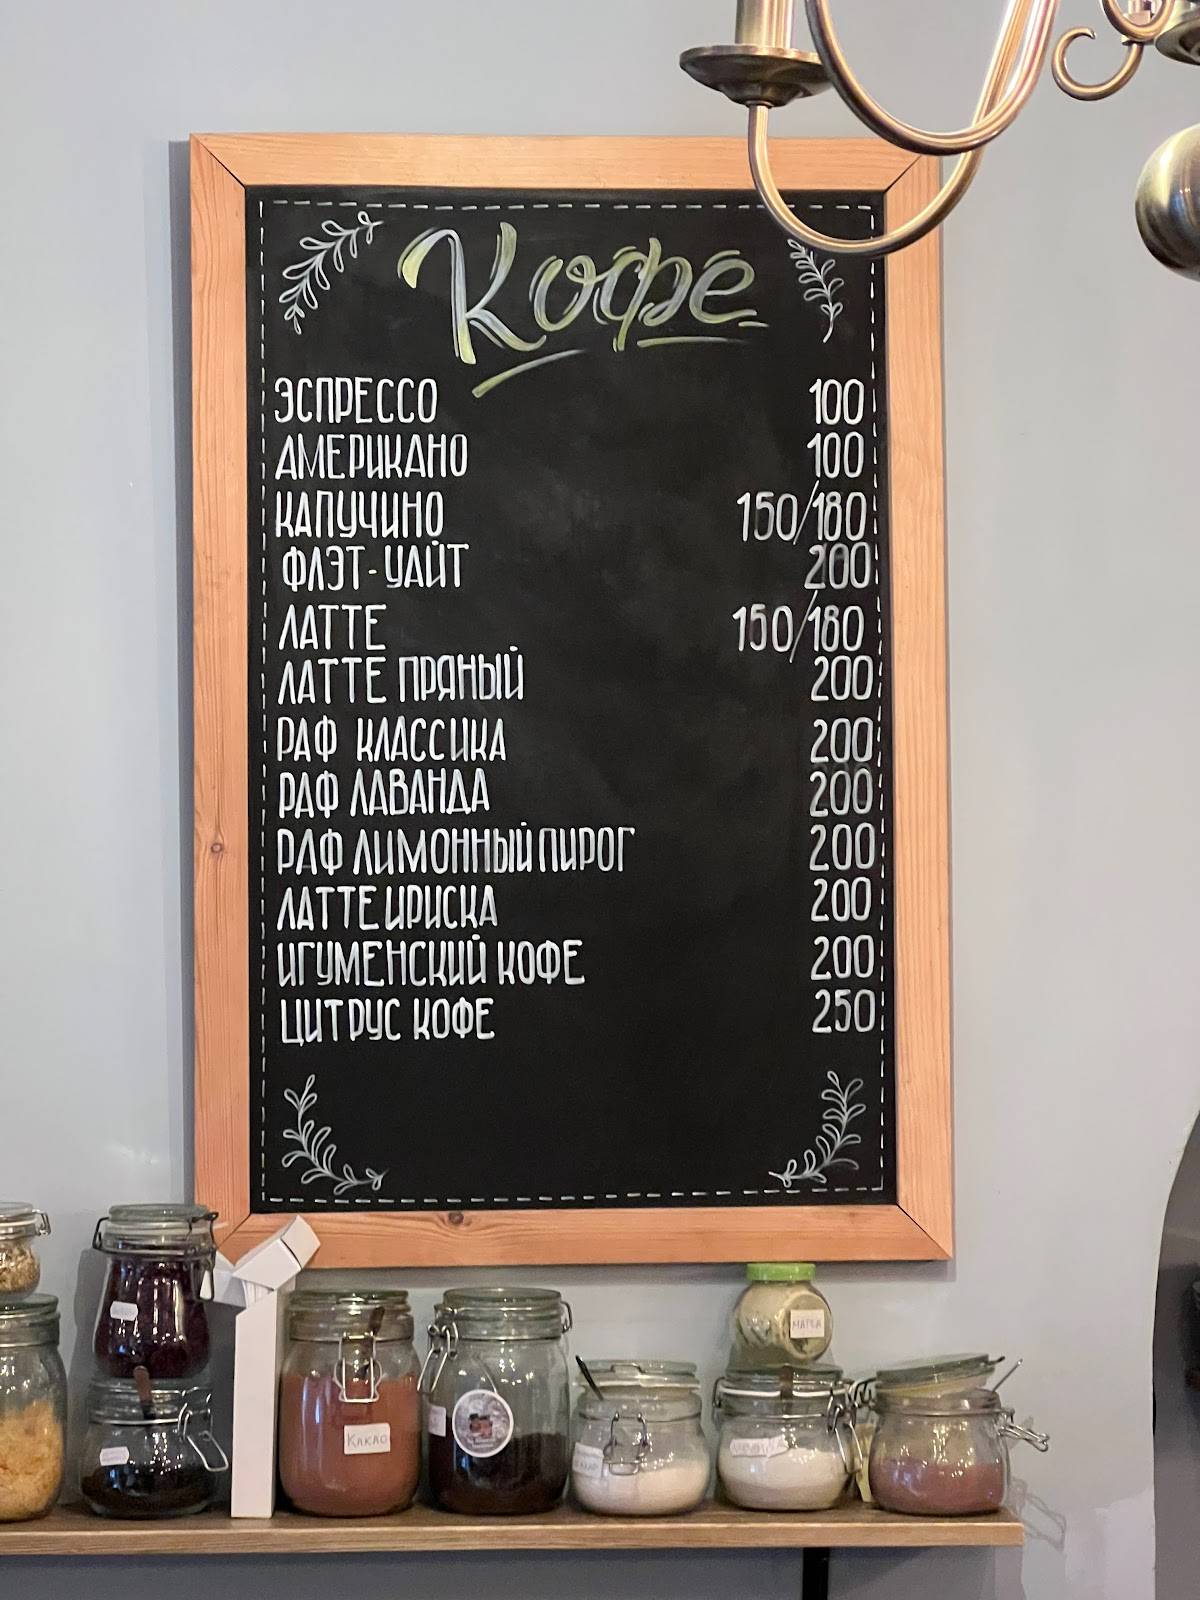 Кофе
ЭСПРЕССО 100
АМЕРИКАНО 100
КАПУЧИНО 150/180
ФЛЭТ-УАЙТ 200
ЛАТТЕ 150/180
ЛАТТЕ ПРЯНЫЙ 200
РАФ КЛАССИКА 200
РАФ ЛАВАНДА 200
РАФ ЛИМОННЫЙ ПИРОГ 200
ЛАТТЕ ИРИСКА 200
ИГУМЕНСКИЙ КОФЕ 200
ЦИТРУС КОФЕ 250
КАКАО